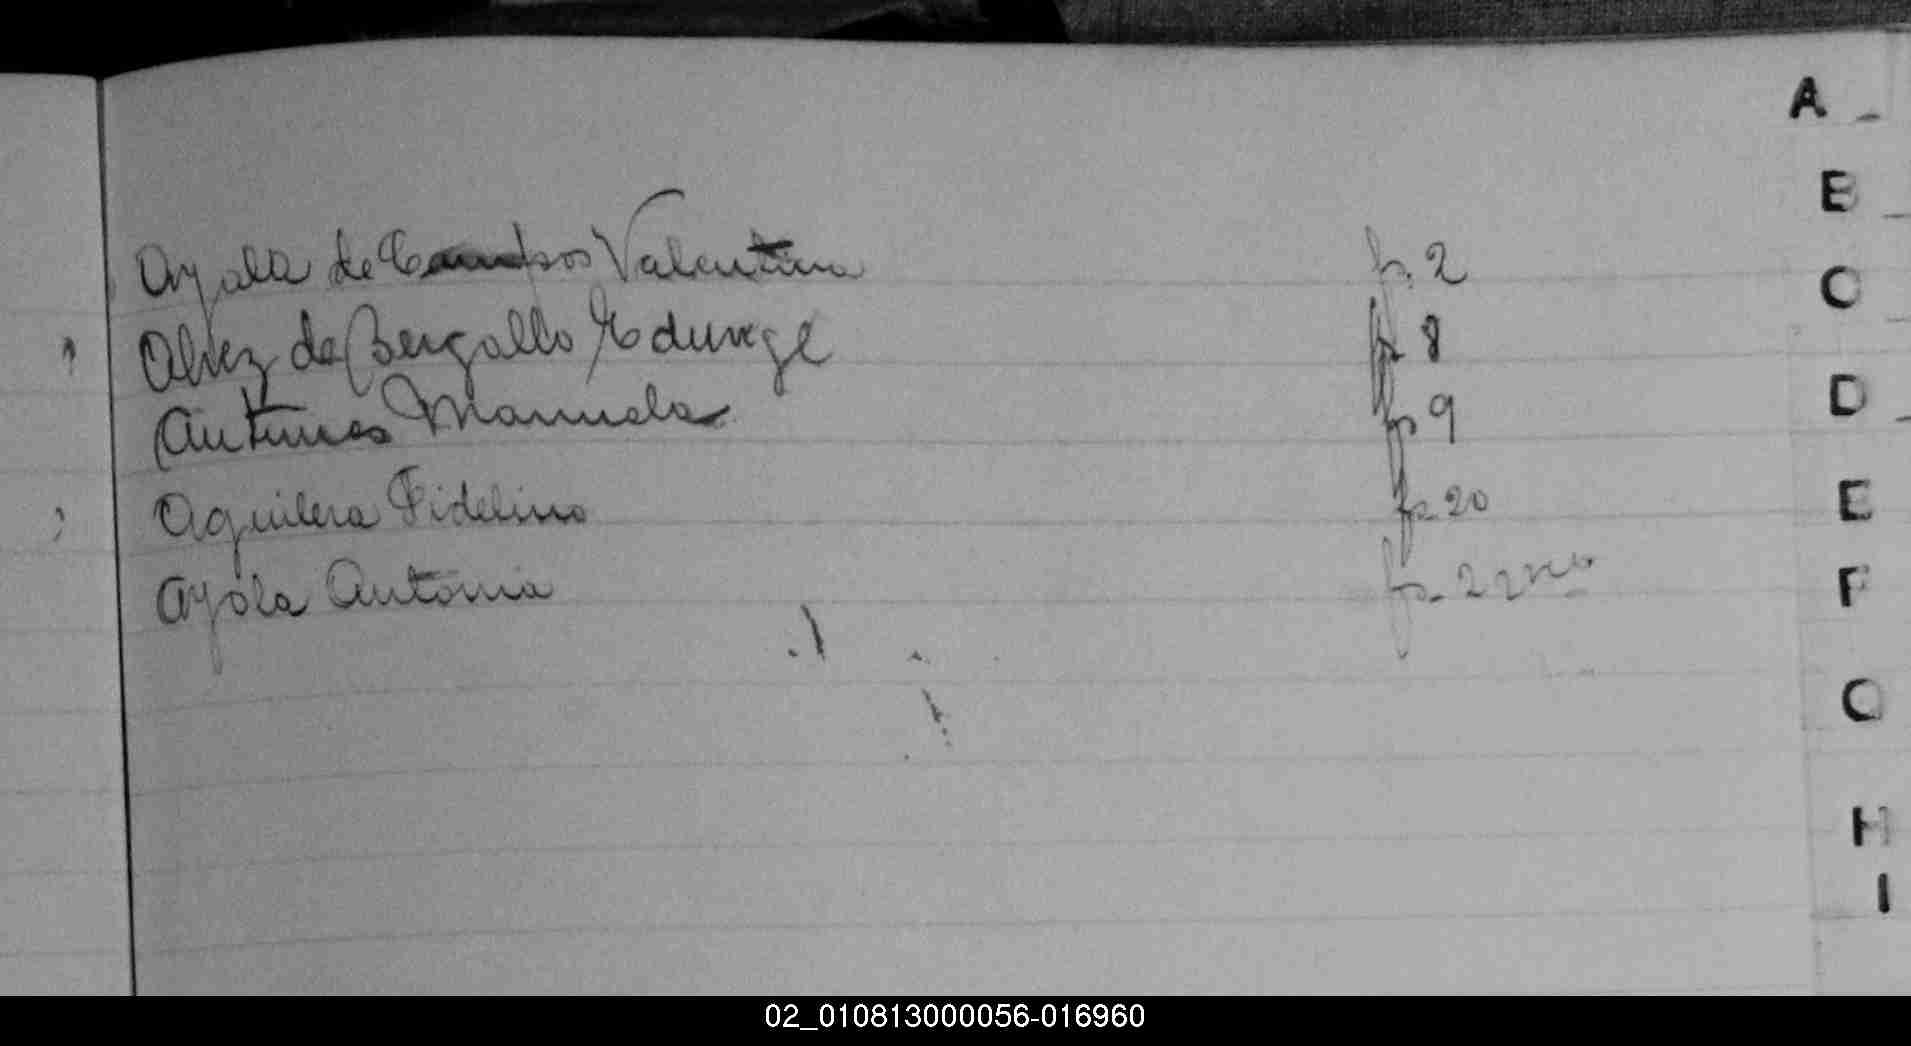 Ayala de Campos Valentina fs. 2
Alvez de Bergallo Eduvige fs 8
Antunes Manuela fs 9
Aguilera Fidelino fs 20
Ayala Antonia fs. 22
A
B
C
D
E
F
G
H
I
02_010813000056-016960